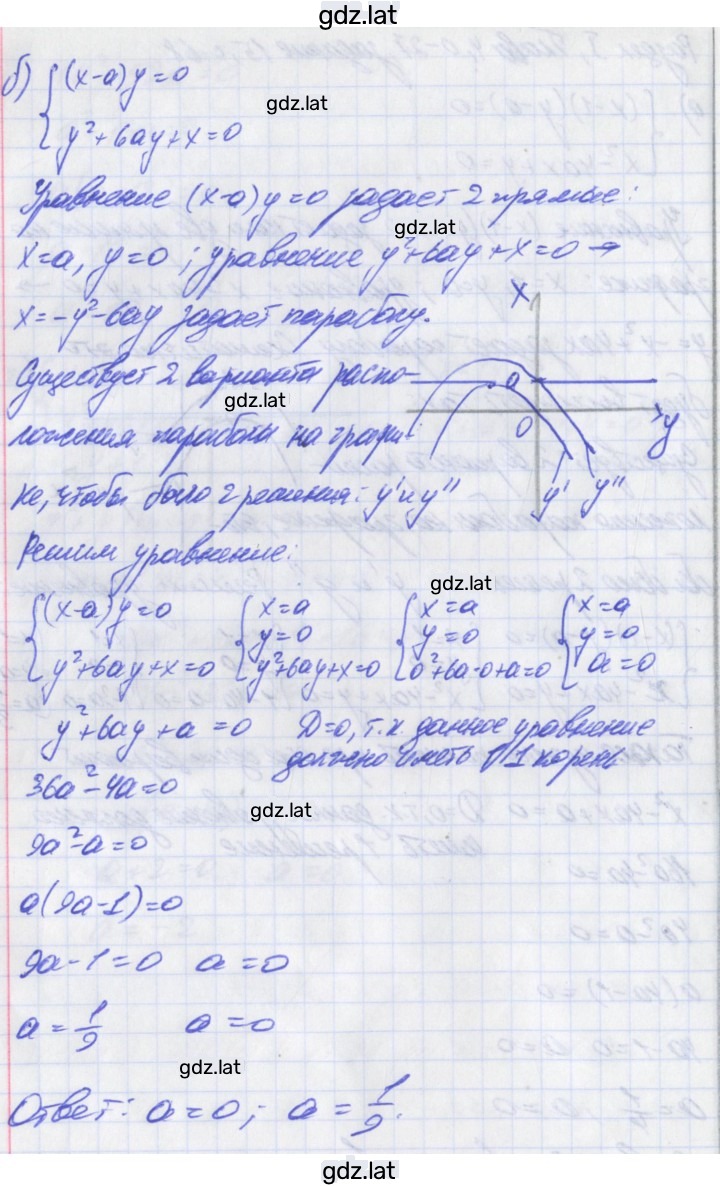 gdz.lat
б) { (x-a)y=0
gdz.lat
y²+6ay+x=0
Уравнение (x-a)y=0 задает 2 прямые:
gdz.lat
x=a, y=0 ; уравнение y²+6ay+x=0 →
x=-y²-6ay задает параболу.
x
Существует 2 варианта распо-
a
gdz.lat
ложения параболы на графи-
0
y
ке, чтобы было 2 решения: y' и y''
y' y''
Решим уравнение:
gdz.lat
{ (x-a)y=0 { x=a { x=a { x=a
y=0 y=0 y=0
y²+6ay+x=0 y²+6ay+x=0 0²+6a·0+a=0 a=0
y²+6ay+a=0 D=0, т.к. данное уравнение
должно иметь 1 корень
36a²-4a=0
gdz.lat
9a²-a=0
a(9a-1)=0
9a-1=0 a=0
a=1/9 a=0
gdz.lat
Ответ: a=0; a=1/9.
gdz.lat